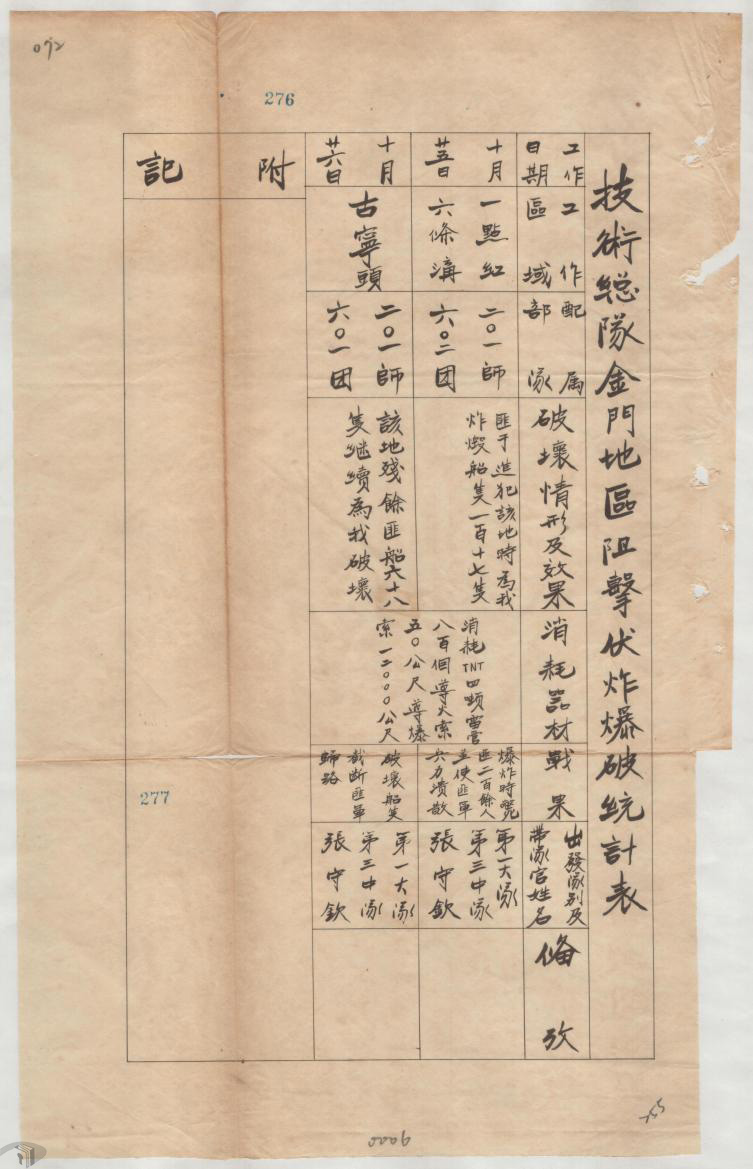 072
276
技術總隊金門地區阻擊伏炸爆破統計表
工作
日期
工作
區域
配属
部隊
破壞情形及效果
消耗器材
戰果
出發隊別及
帶隊官姓名
備攷
十月
廿五日
一點紅
六條溝
二〇一師
六〇二团
匪于進犯該地時為我
炸燬船隻一百十七隻
消耗TNT四噸雷管
八百個導火索
五〇公尺導爆
索一二〇〇〇公尺
爆炸時斃
匪二百餘人
並使匪軍
兵力潰散
第一大隊
第三中隊
張守欽
十月
廿六日
古寧頭
二〇一師
六〇一团
該地殘餘匪船六十八
隻継續為我破壞
破壞船隻
截斷匪軍
歸路
第一大隊
第三中隊
張守欽
附記
277